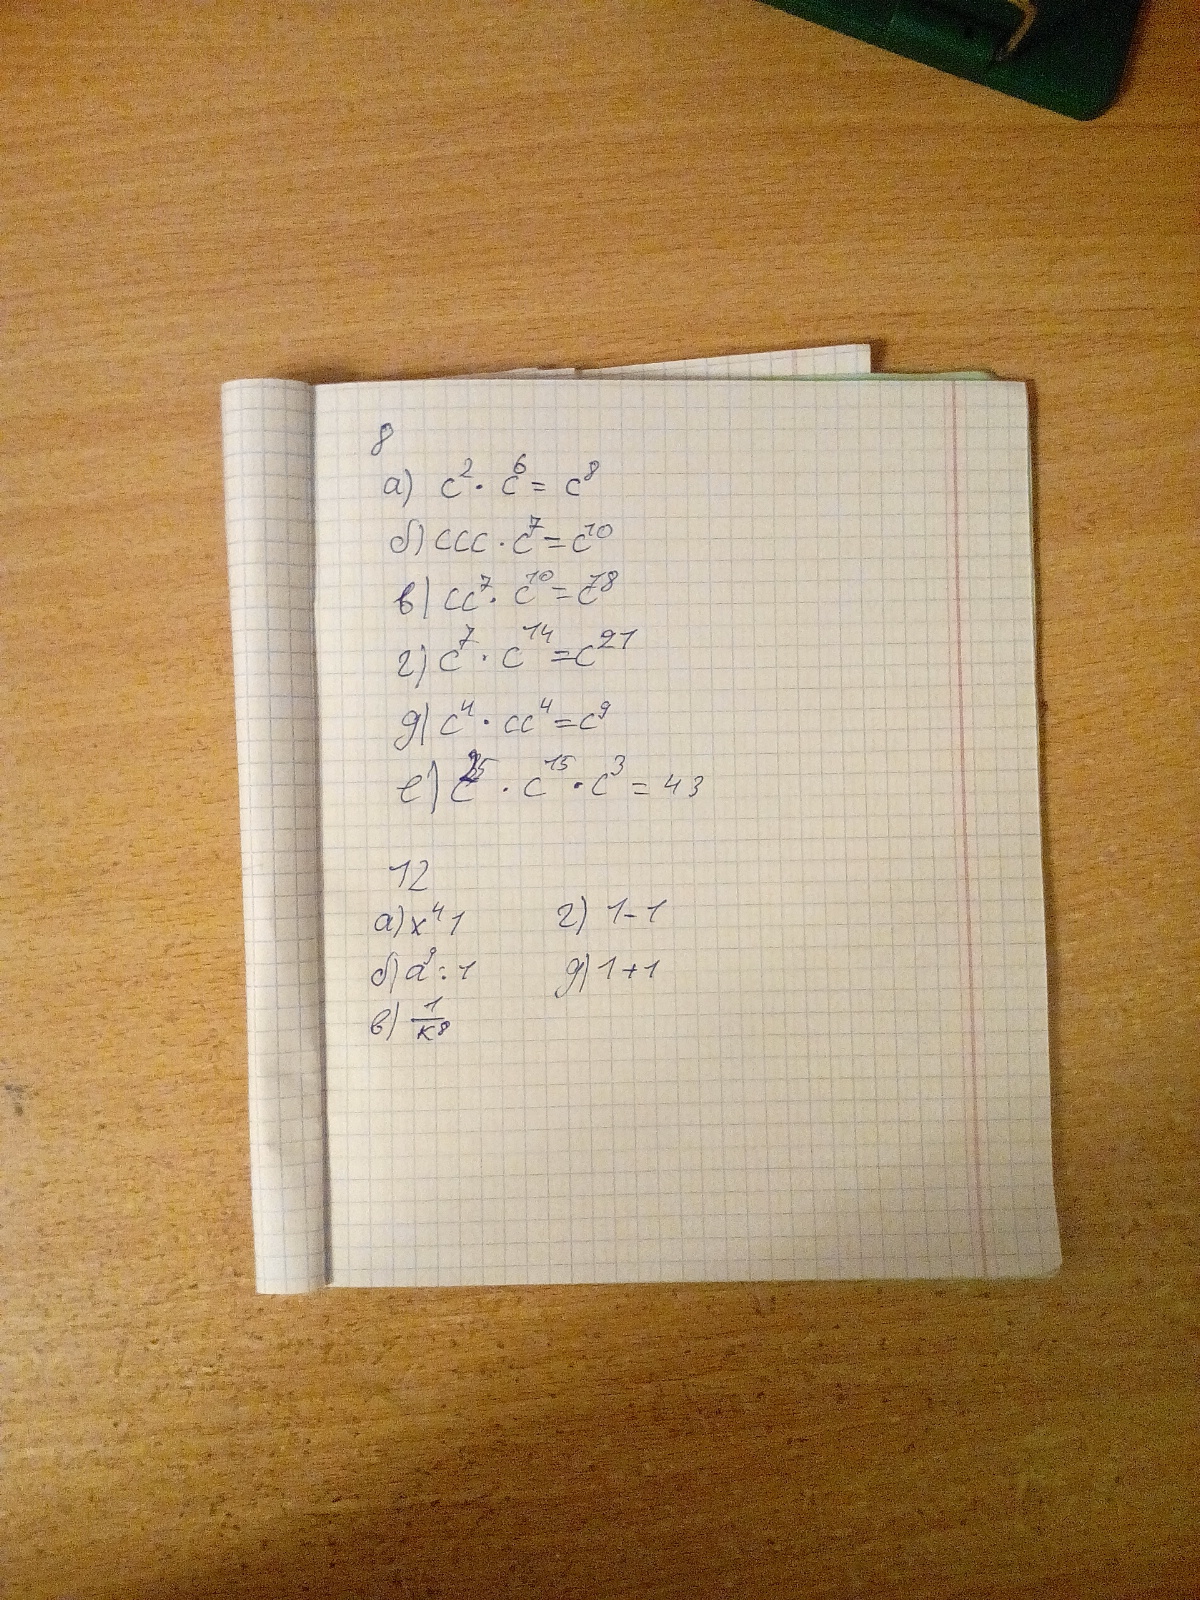 8
а) c² · c⁶ = c⁸
б) ccc · c⁷ = c¹⁰
в) cc⁷ · c¹⁰ = c¹⁸
г) c⁷ · c¹⁴ = c²¹
д) c⁴ · cc⁴ = c⁹
е) c²⁵ · c¹⁵ · c³ = 43
12
а) x⁴ 1 г) 1 - 1
б) a⁹ : 1 д) 1 + 1
в) 1/к⁸